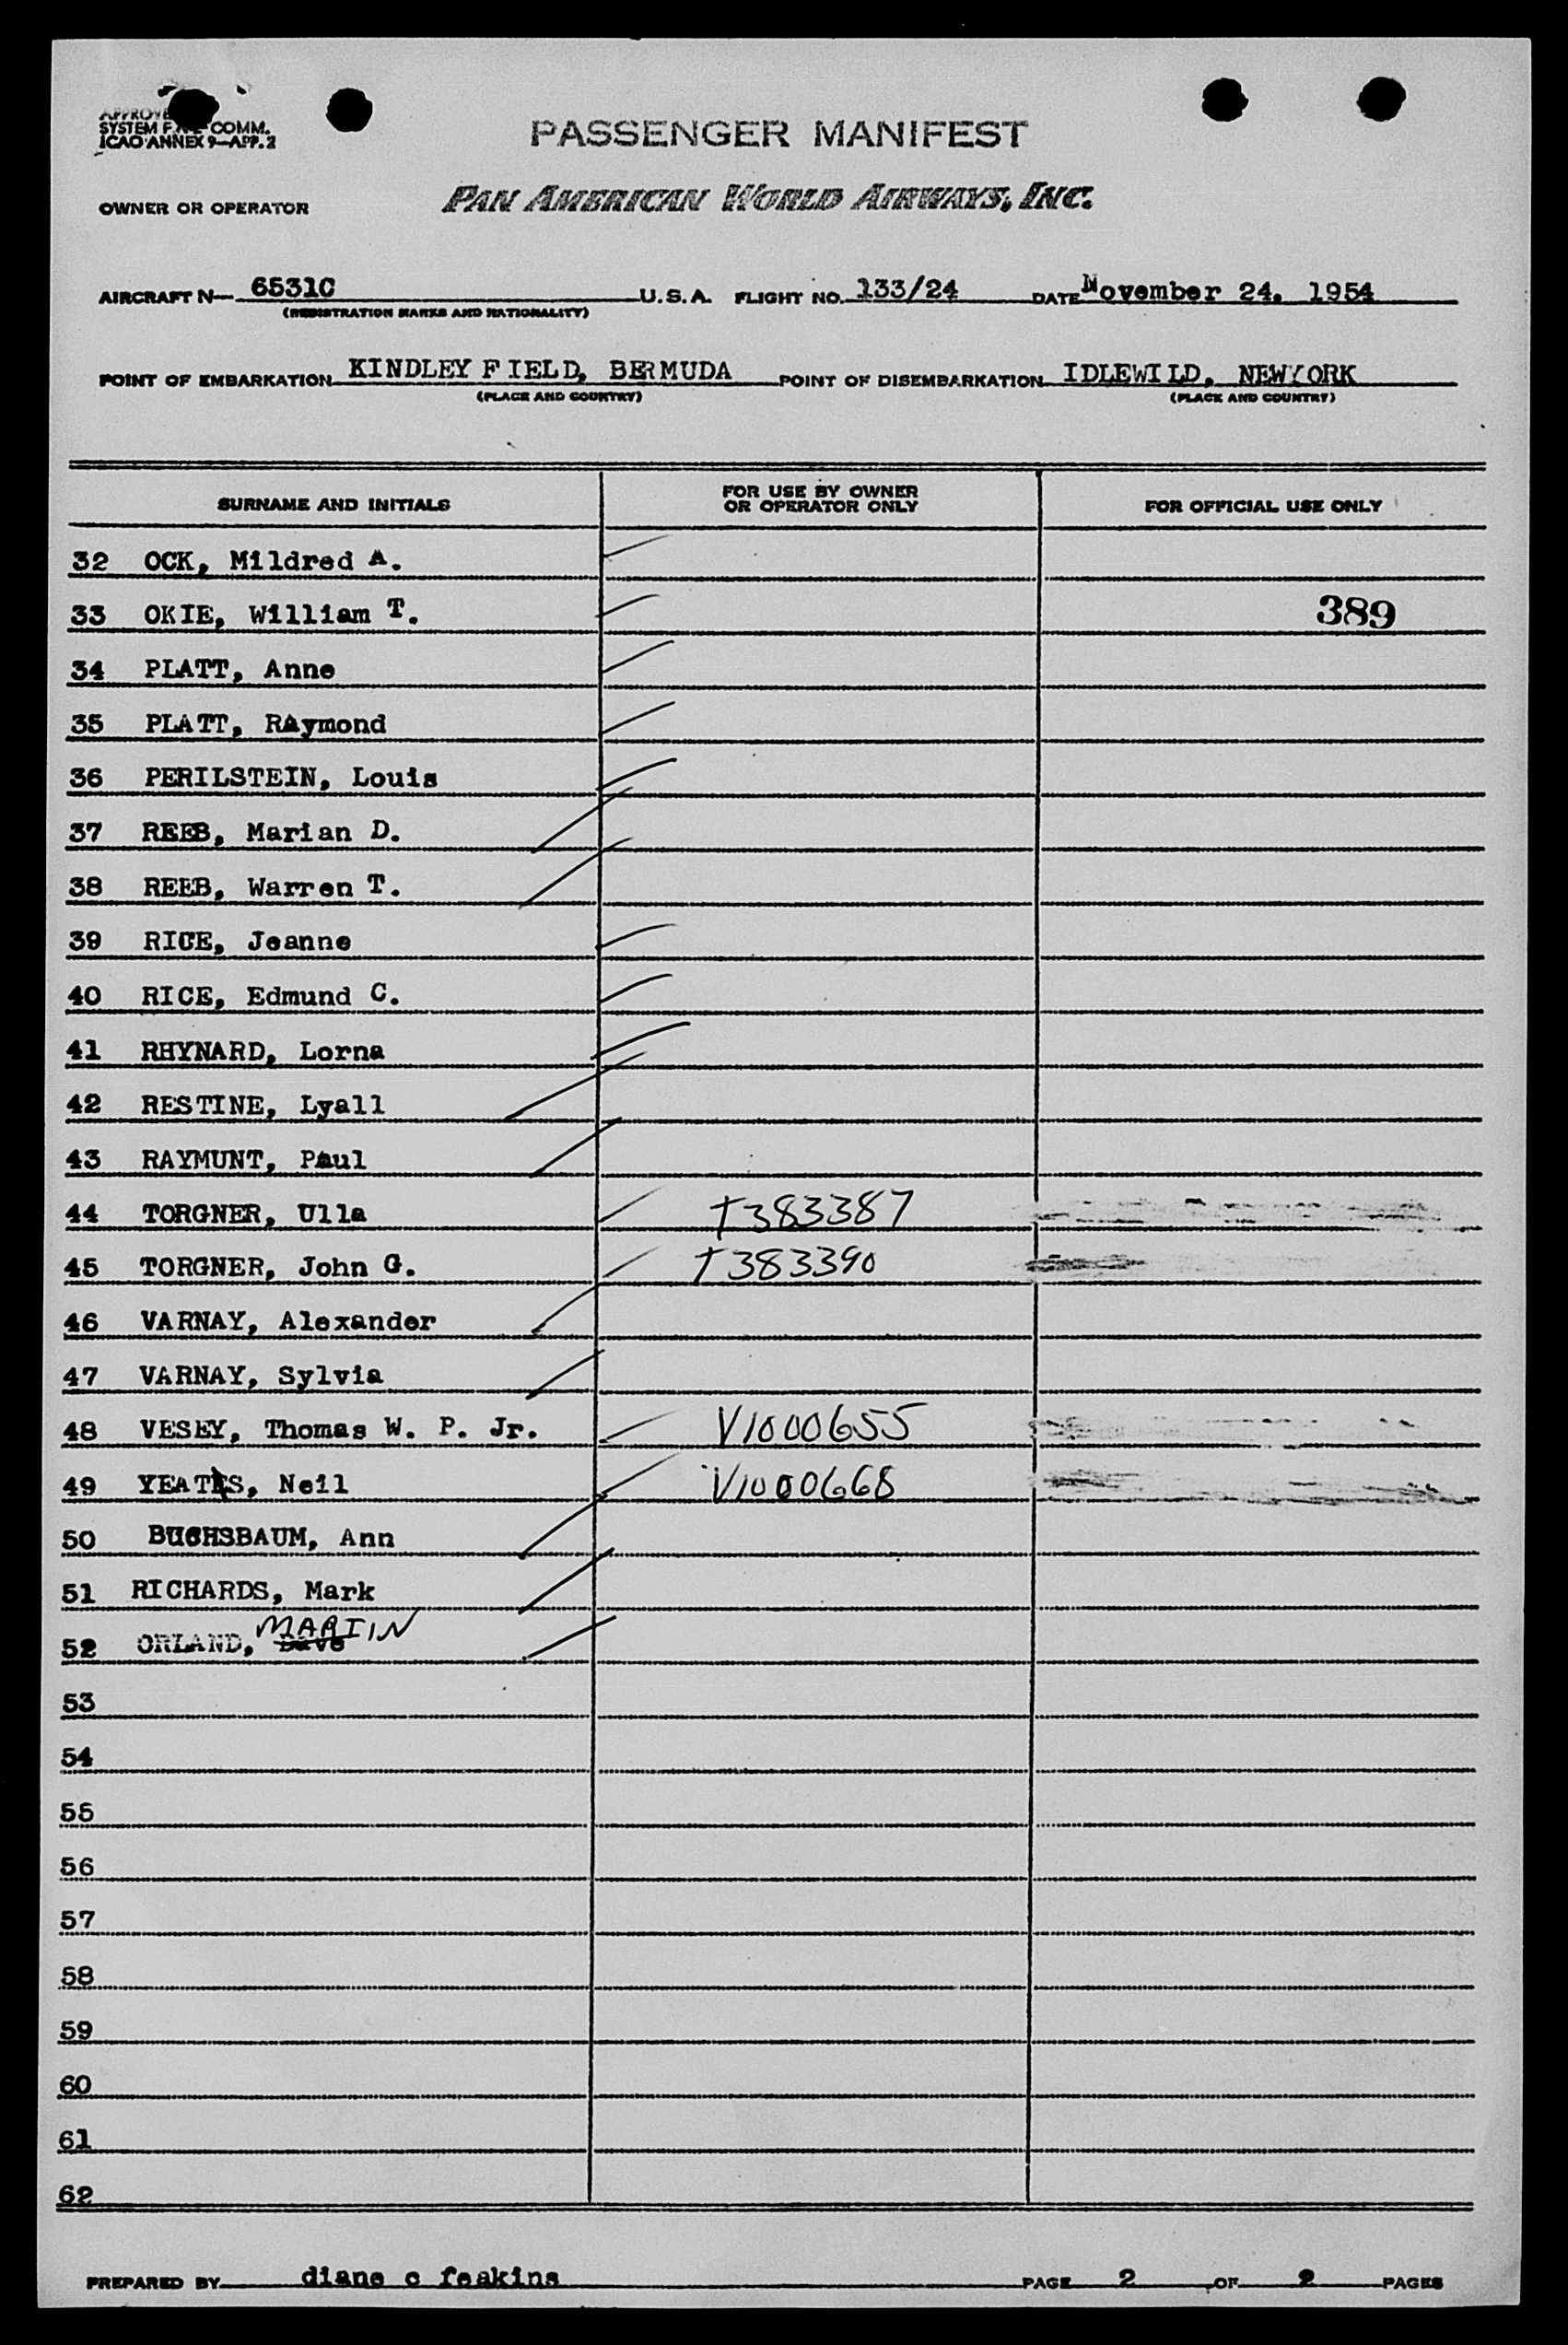 APPROVE
SYSTEM F COMM.
ICAO ANNEX 9—APP. 2
PASSENGER MANIFEST
OWNER OR OPERATOR PAN AMERICAN WORLD AIRWAYS, INC.
AIRCRAFT N— 6531C U.S.A. FLIGHT NO. 133/24 DATE November 24, 1954
(REGISTRATION MARKS AND NATIONALITY)
POINT OF EMBARKATION KINDLEY FIELD, BERMUDA POINT OF DISEMBARKATION IDLEWILD, NEWYORK
(PLACE AND COUNTRY) (PLACE AND COUNTRY)
SURNAME AND INITIALS FOR USE BY OWNER OR OPERATOR ONLY FOR OFFICIAL USE ONLY
32 OCK, Mildred A.
33 OKIE, William T. 389
34 PLATT, Anne
35 PLATT, RAymond
36 PERILSTEIN, Louis
37 REEB, Marian D.
38 REEB, Warren T.
39 RICE, Jeanne
40 RICE, Edmund C.
41 RHYNARD, Lorna
42 RESTINE, Lyall
43 RAYMUNT, Paul
44 TORGNER, Ulla T383387
45 TORGNER, John G. T383390
46 VARNAY, Alexander
47 VARNAY, Sylvia
48 VESEY, Thomas W. P. Jr. V1000655
49 YEATES, Neil V1000668
50 BUCHSBAUM, Ann
51 RICHARDS, Mark
52 ORLAND, Dave MARTIN
53
54
55
56
57
58
59
60
61
62
PREPARED BY diane c feakins PAGE 2 OF 2 PAGES